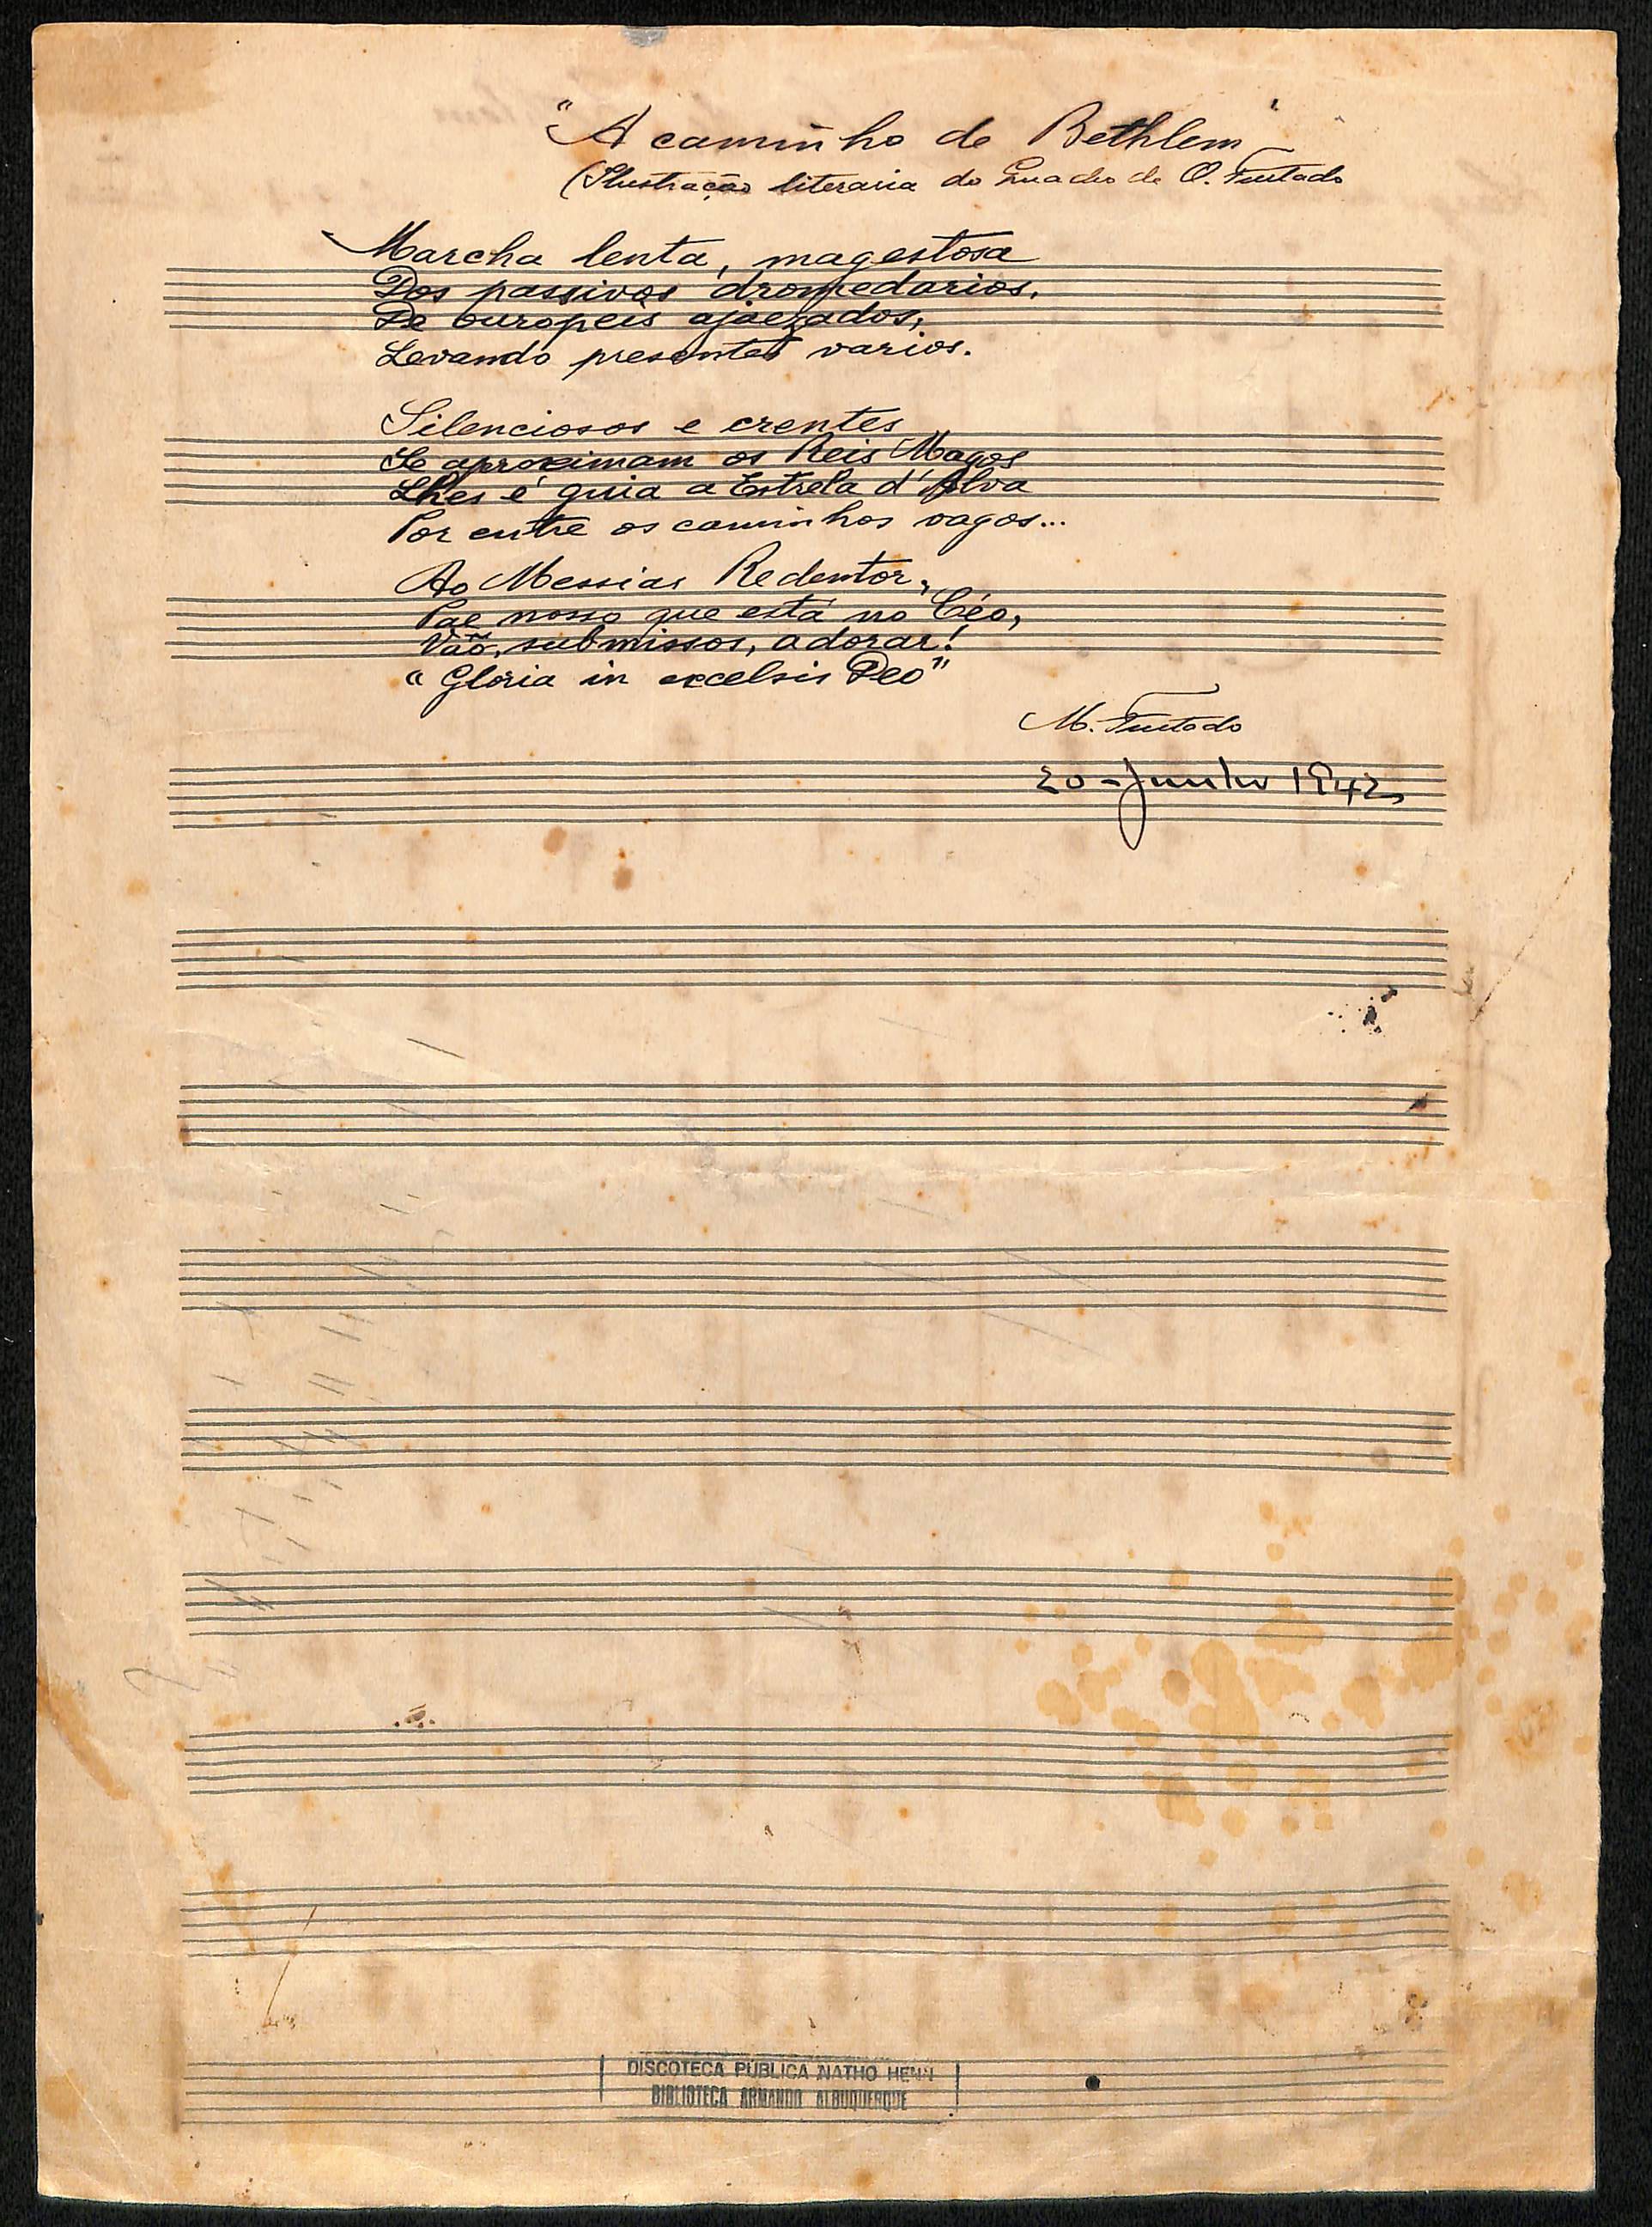 "A caminho de Bethlem"
(Ilustração literaria do Quadro de O. Furtado
Marcha lenta, magestosa
Dos passivos dromedarios,
De ouropeis ajaezados,
Levando presentes varios.
Silenciosos e crentes
Se aproximam os Reis Magos
Lhes é guia a Estrela d'Alva
Por entre os caminhos vagos...
Ao Messias Redentor,
Pae nosso que está no Céo,
Vão, submissos, adorar!
"Gloria in excelsis Deo"
M. Furtado
20 - Junho 1942
DISCOTECA PÚBLICA NATHO HENN
BIBLIOTECA ARMANDO ALBUQUERQUE